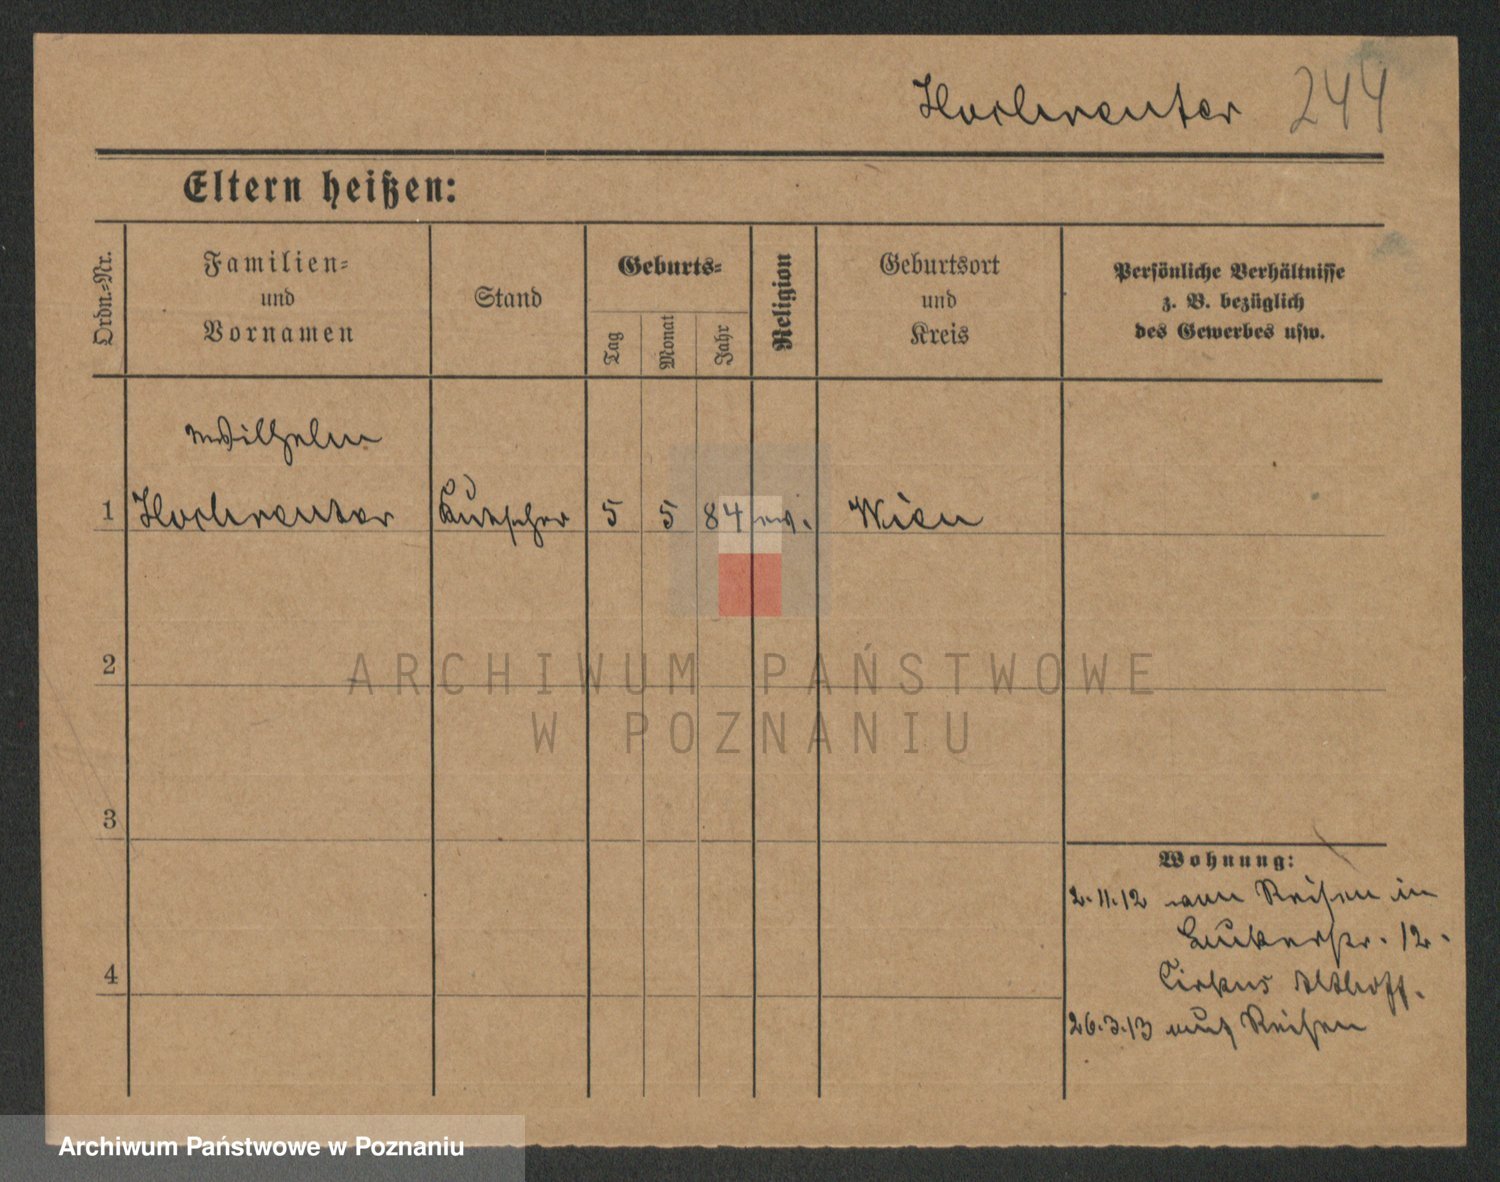 Hochreuter 244
Eltern heißen:
Ordn.-Nr.
Familien-
und
Vornamen
Stand
Geburts-
Tag
Monat
Jahr
Religion
Geburtsort
und
Kreis
Persönliche Verhältnisse
z. B. bezüglich
des Gewerbes usw.
Wilhelm
1 Hochreuter Kutscher 5 5 84 ev. Wien
2
3
4
Wohnung:
2.11.12 von Reisen in
12.
Cirkus Althoff.
26.3.13 auf Reisen
ARCHIWUM PAŃSTWOWE
W POZNANIU
Archiwum Państwowe w Poznaniu